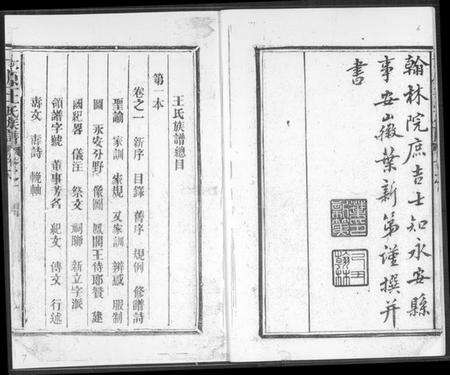 翰林院庶吉士知永安縣
事安徽葉新第謹撰并
書
王氏族譜總目
第一本
卷之一 新序 目錄 舊序 規例 修譜詩
聖諭 家訓 家規 又家訓 辨惑 服制
圖 永安分野 像圖 鳳閣王侍郎贊 建
國紀畧 儀注 祭文 祠聯 新立字派
領譜字號 董事芳名 紀文 傳文 行述
壽文 壽詩 輓軸